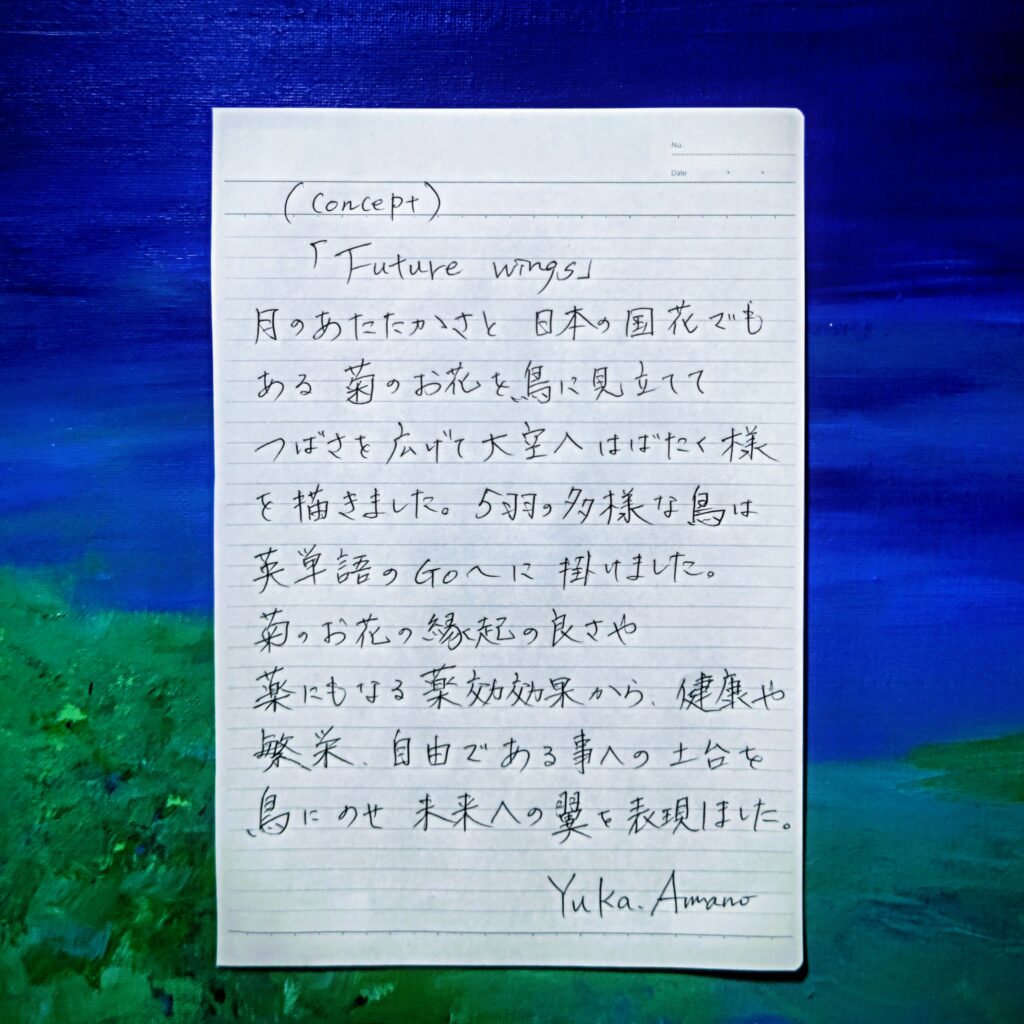 No.
Date
(concept)
「Future wings」
月のあたたかさと 日本の国花でも
ある 菊のお花を鳥に見立てて
つばさを広げて大空へはばたく様
を描きました。5羽の多様な鳥は
英単語のGoへに 掛けました。
菊のお花の縁起の良さや
薬にもなる薬効効果から、健康や
繁栄、自由である事への土台を
鳥にのせ 未来への翼を表現しました。
Yuka.Amano